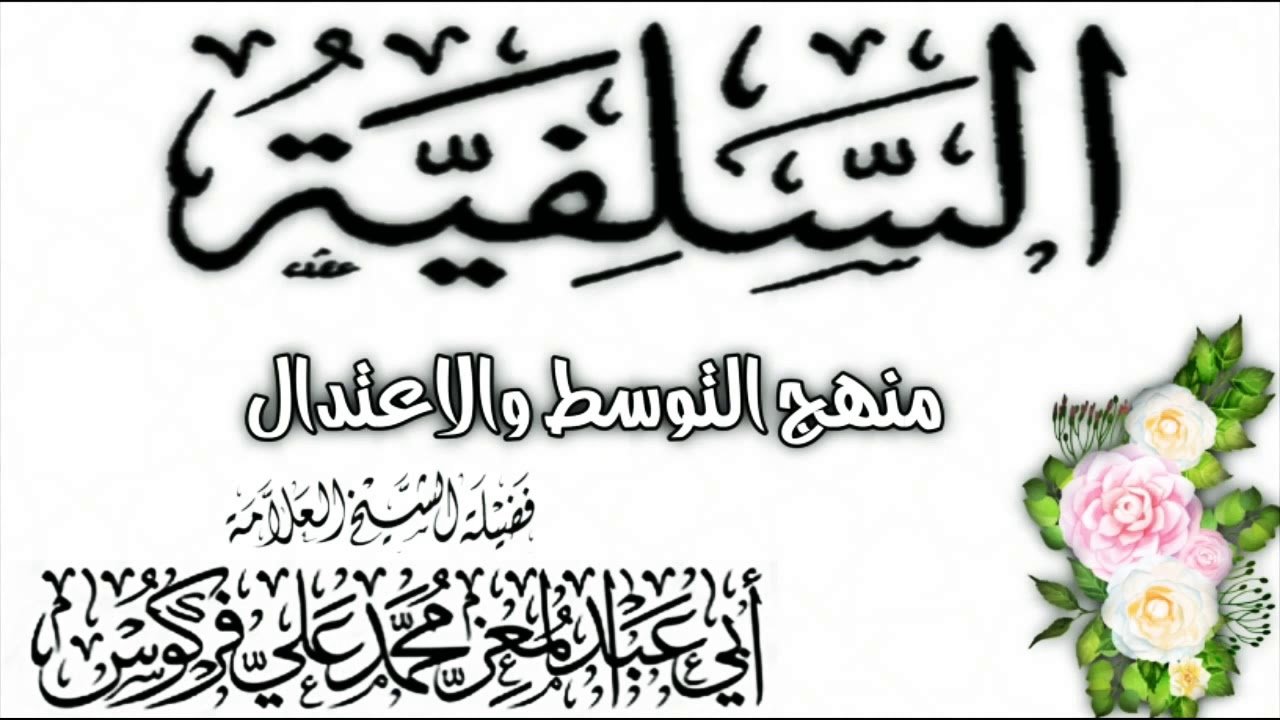 السَّلَفِيَّةُ
منهج التوسط والاعتدال
فَضِيْلَة الشَّيْخ العَلاَّمَة
أبي عَبْد المُعِزِّ مُحَمَّد عَلِيّ فَرْكُوسْ